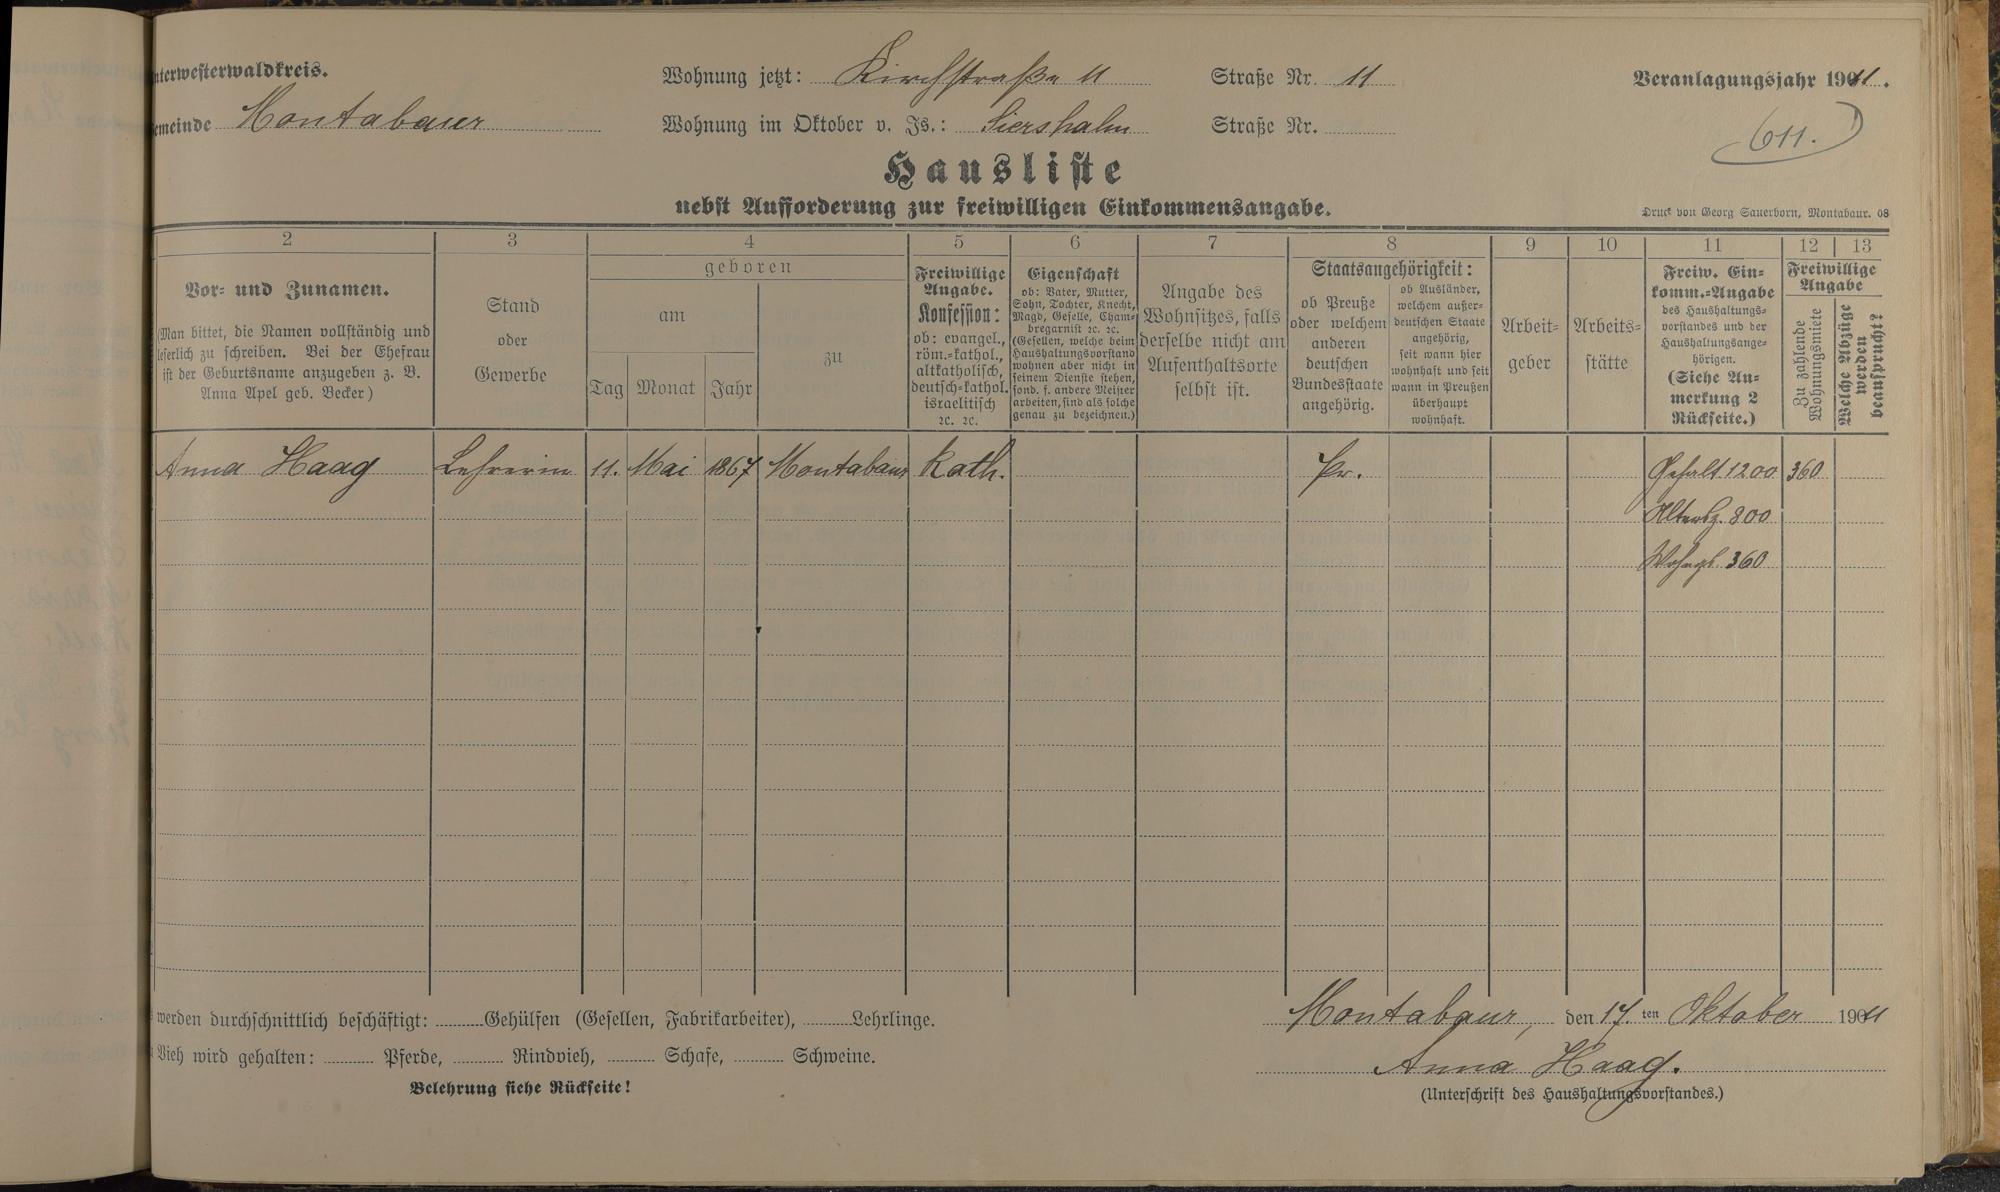 nterwesterwaldkreis.
Wohnung jetzt: Kirchstraße 11 Straße Nr. 11
Veranlagungsjahr 1911.
emeinde Montabaur
Wohnung im Oktober v. Js.: Siershahn Straße Nr.
611.
Hausliste
nebst Aufforderung zur freiwilligen Einkommensangabe.
Druck von Georg Sauerborn, Montabaur. 08
2 3 4 5 6 7 8 9 10 11 12 13
Vor- und Zunamen.
(Man bittet, die Namen vollständig und
leserlich zu schreiben. Bei der Ehefrau
ist der Geburtsname anzugeben z. B.
Anna Apel geb. Becker)
Stand
oder
Gewerbe
geboren
am
Tag Monat Jahr
zu
Freiwillige
Angabe.
Konfession:
ob: evangel.,
röm.-kathol.,
altkatholisch,
deutsch-kathol.
israelitisch
ꝛc. ꝛc.
Eigenschaft
ob: Vater, Mutter,
Sohn, Tochter, Knecht,
Magd, Geselle, Cham-
bregarnist ꝛc. ꝛc.
(Gesellen, welche beim
Haushaltungsvorstand
wohnen aber nicht in
seinem Dienste stehen,
sond. f. andere Meister
arbeiten, sind als solche
genau zu bezeichnen.)
Angabe des
Wohnsitzes, falls
derselbe nicht am
Aufenthaltsorte
selbst ist.
Staatsangehörigkeit:
ob Preuße
oder welchem
anderen
deutschen
Bundesstaate
angehörig.
ob Ausländer,
welchem außer-
deutschen Staate
angehörig,
seit wann hier
wohnhaft und seit
wann in Preußen
überhaupt
wohnhaft.
Arbeit-
geber
Arbeits-
stätte
Freiw. Ein-
komm.-Angabe
des Haushaltungs-
vorstandes und der
Haushaltungsange-
hörigen.
(Siehe An-
merkung 2
Rückseite.)
Freiwillige
Angabe
Zu zahlende
Wohnungsmiete
Welche Abzüge
werden
beansprucht?
Anna Haag Lehrerin 11. Mai 1867 Montabaur kath. Pr. Gehalt 1200 360
Altersz. 800
Wohngl. 360
werden durchschnittlich beschäftigt: Gehülfen (Gesellen, Fabrikarbeiter), Lehrlinge.
Vieh wird gehalten: Pferde, Rindvieh, Schafe, Schweine.
Belehrung siehe Rückseite!
Montabaur, den 17. ten Oktober 1911
Anna Haag.
(Unterschrift des Haushaltungsvorstandes.)